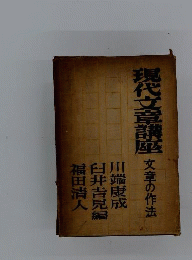 現代文章講座
文章の作法
川端康成
臼井吉見編
福田清人